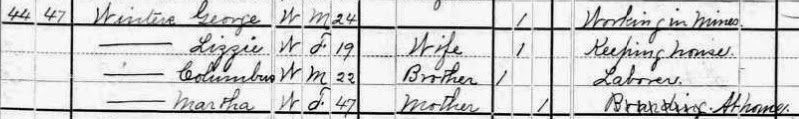 44 47 Winters George W M 24 1 Working in mines.
—— Lizzie W F 19 Wife 1 Keeping house.
—— Columbus W M 22 Brother 1 Laborer.
—— Martha W F 47 Mother 1 Boarding. At home.